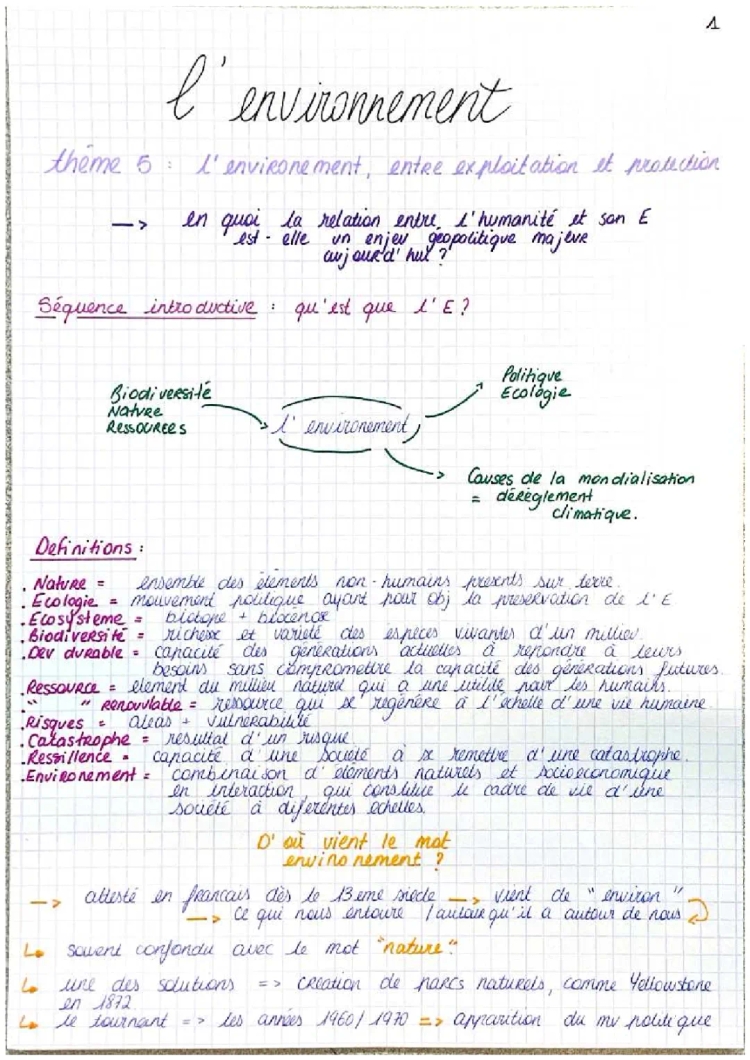 1
l'environnement
thème 5 : l'environement, entre exploitation et protection
--> en quoi la relation entre l'humanité et son E
est-elle un enjeu géopolitique majeur
aujourd'hui ?
Séquence introductive : qu'est que l'E ?
Biodiversité
Nature
Ressources
l'environement
Politique
Ecologie
Causes de la mondialisation
= dérèglement
climatique.
Definitions :
. Nature = ensemble des éléments non-humains présents sur terre.
. Ecologie = mouvement politique ayant pour obj la préservation de l'E
. Ecosysteme = biotope + biocénose
. Biodiversité = richesse et variété des espèces vivantes d'un millieu.
. Dev durable = capacité des générations actuelles à répondre à leurs
besoins sans compromettre la capacité des générations futures.
. Ressource = élément du milieu naturel qui a une utilité pour les humains.
. " " renouvlable = ressource qui se régénère à l'échelle d'une vie humaine
. Risques = aléas + vulnérabilité
. Catastrophe = résultat d'un risque
. Ressillence = capacité d'une société à se remettre d'une catastrophe.
. Environement = combinaison d'éléments naturels et socioéconomique
en interaction, qui constitue le cadre de vie d'une
société à diférentes echelles.
D'où vient le mot
environement ?
--> attesté en francais dès le 13 eme siècle --> vient de "environ"
--> ce qui nous entoure / autour qu'il a autour de nous
↳ souvent confondu avec le mot "nature".
↳ une des solutions => création de parcs naturels, comme Yellowstone
en 1872
↳ le tournant => les années 1960/1970 => apparition du mv politique